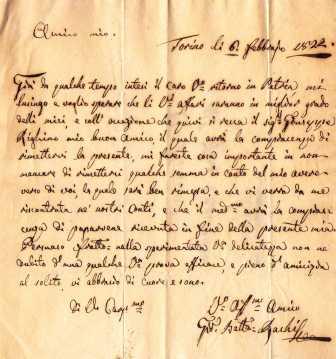 Amico mio.
Torino li 6 febbraio 1822
Già da qualche tempo intesi il caro Vro ritorno in Patria mi
lusingo e voglio sperare che li Vri affari saranno in miglior grado
delli miei, e coll'occasione che quivi si reca il sigr Giuseppe
Righino mio buon Amico, il quale avrà la compiacenza di
rimettervi la presente, mi fareste cosa importante in non
mancare di rimettervi qualche somma in conto del mio avere
verso di voi la quale sarà ben rimessa, e che vi verrà da me
riscontrata ne' nostri Conti, e che il medmo avrà la compia-
cenza di passarvene ricevuta in fine della presente mia
Persuaso frattto nella sperimentata Vra delicatezza non ne
dubito d'una qualche Vra prova efficace, e pieno d'amicizia
al solito, vi abbraccio di cuore e sono.
Di Vo Carmo
Vro Affmo Amico
Gio Batta